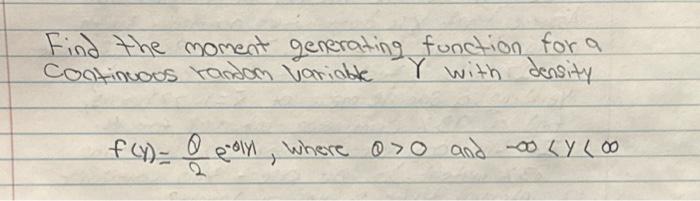 Find the moment generating function for a
Continuous random variable Y with density
f(y) = θ/2 e^-θ|y|, where θ>0 and -∞<y<∞